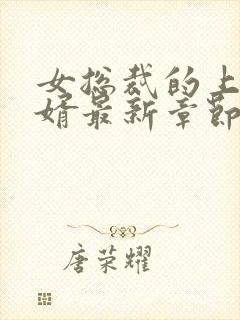 女总裁的上
婿最新章节
唐荣耀